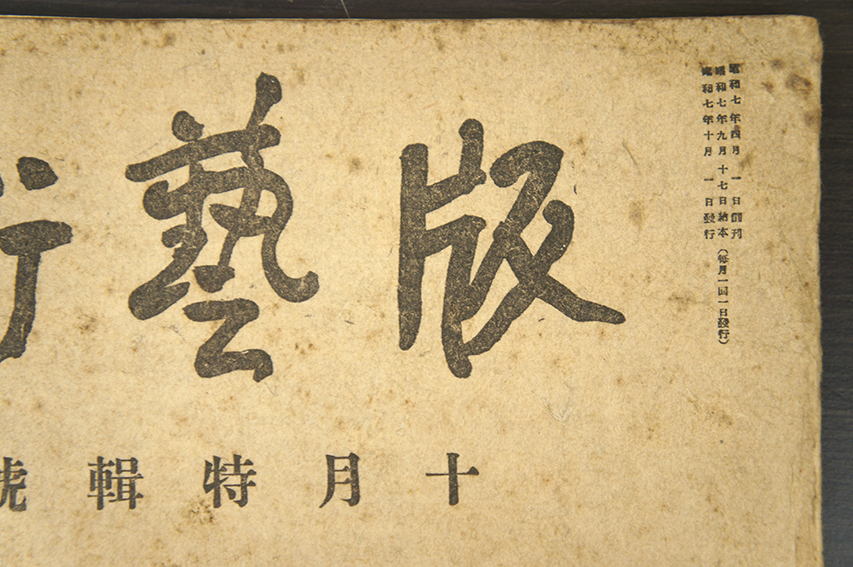 版藝術
十月特輯號
昭和七年四月 一日創刊
昭和七年九月十七日納本(毎月一回一日發行)
昭和七年十月 一日發行